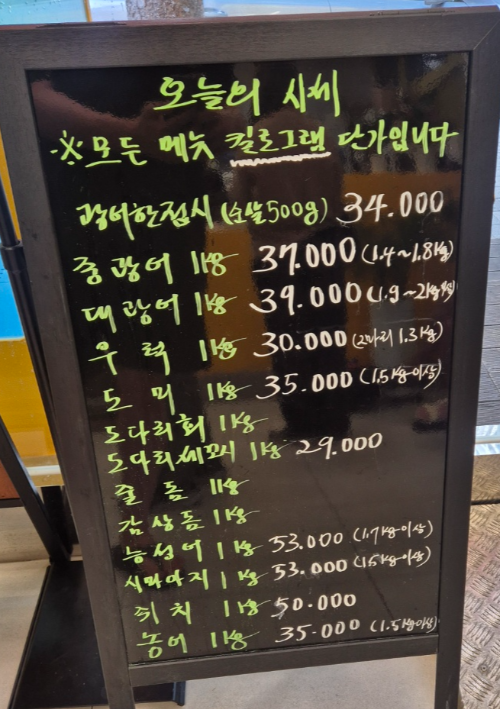 오늘의 시세
※ 모든 메뉴 킬로그램 단가입니다
광어한접시 (순살500g) 34.000
중광어 1kg 37.000 (1.4~1.8kg)
대광어 1kg 39.000 (1.9~2kg
우럭 1kg 30.000 (2마리 1.3kg)
도미 1kg 35.000 (1.5kg이상)
도다리회 1kg
도다리세꼬시 1kg 29.000
줄돔 1kg
감성돔 1kg
능성어 1kg 53.000 (1.7kg이상)
시마아지 1kg 53.000 (1.5kg이상)
쥐치 1kg 50.000
농어 1kg 35.000 (1.5kg이상)